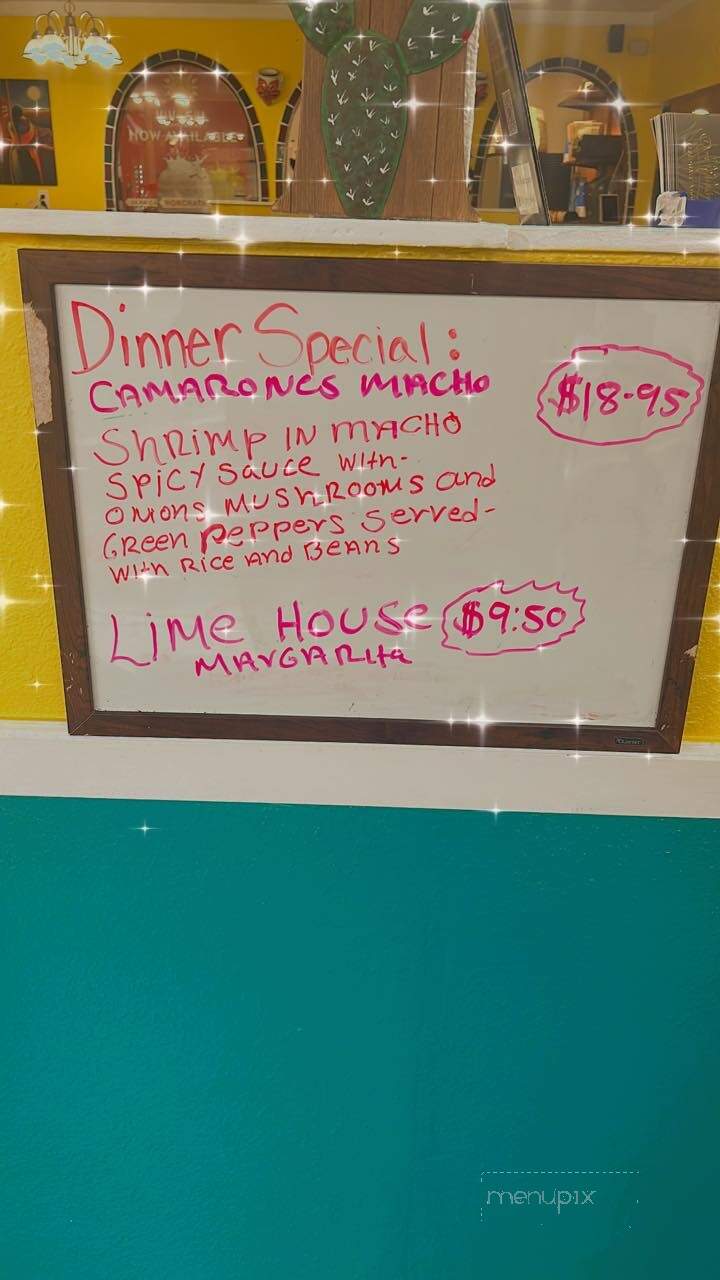 NOW AVAILABLE
HORCHATA
Dinner Special:
CAMARONES MACHO
$18.95
SHRIMP IN MACHO
SPICY SAUCE WITH-
ONIONS MUSHROOMS and
GREEN PEPPERS SERVED-
WITH RICE AND BEANS
LIME HOUSE $9:50
MARGARITA
menupix